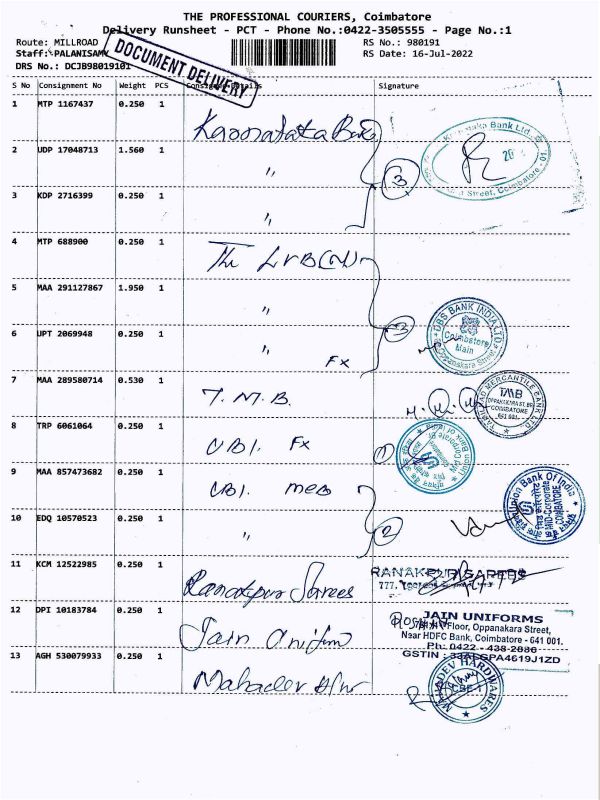 THE PROFESSIONAL COURIERS, Coimbatore
Delivery Runsheet - PCT - Phone No.:0422-3505555 - Page No.:1
Route: MILLROAD RS No.: 980191
Staff: PALANISAMY RS Date: 16-Jul-2022
DRS No.: DCJB98019101
DOCUMENT DELIVERY
S No Consignment No Weight PCS Consignee Details Signature
1 MTP 1167437 0.250 1
Karnataka Bank
Karnataka Bank Ltd.
Street, Coimbatore - 01
2 UDP 17048713 1.560 1
"
3
3 KDP 2716399 0.250 1
"
4 MTP 688900 0.250 1
The LVB(N)
5 MAA 291127867 1.950 1
"
DBS BANK INDIA LTD
Coimbatore
Main
Oppanakara Street
6 UPT 2069948 0.250 1
" FX
7 MAA 289580714 0.530 1
T.M.B.
TAMILNAD MERCANTILE BANK LTD.
TMB
OPPANAKARA ST. BR
COIMBATORE
641 001.
8 TRP 6061064 0.250 1
UBI. FX
1
Union Bank of India
Mid Corporate
9 MAA 857473682 0.250 1
UBI. MCB
Union Bank Of India
MID-Corporate
COIMBATORE
10 EDQ 10570523 0.250 1
"
2
11 KCM 12522985 0.250 1
Ranakpur Sarees
RANAKPUR SAREES
777,
12 DPI 10183784 0.250 1
Jain Uniform
JAIN UNIFORMS
Floor, Oppanakara Street,
Near HDFC Bank, Coimbatore - 641 001.
Ph: 0422 - 438-2886
GSTIN : 33ALGPA4619J1ZD
13 AGH 530079933 0.250 1
Mahadev H/w
MAHADEV HARDWARES
CBE-1